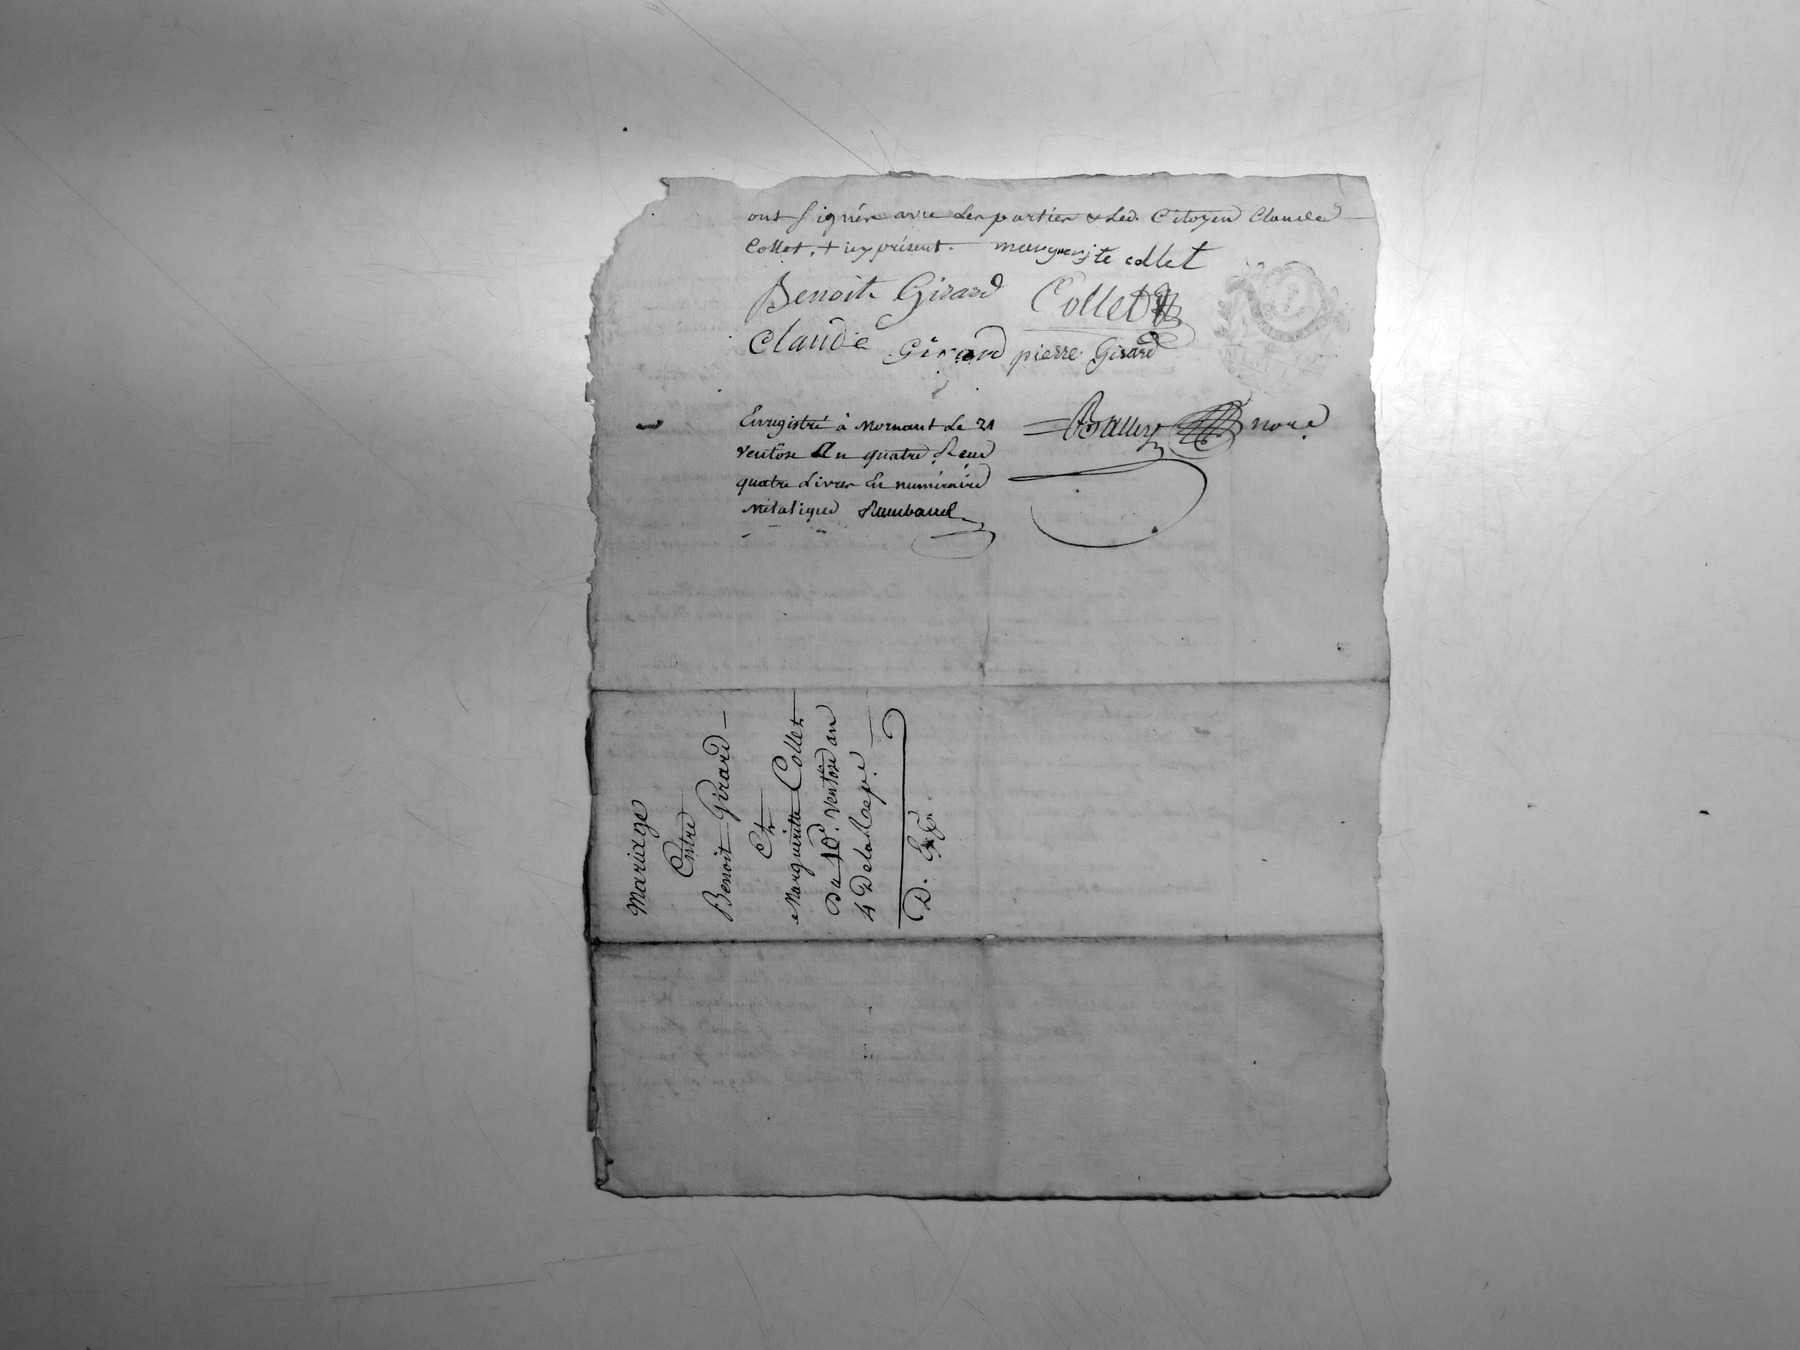 ont signés avec les parties & led. Citoyen Claude
Collet, + icy présent. marguerite collet
Benoit Girard Collet
Claude Girard pierre Girard
Enregistré à Mornant le 21
Balley nore
Ventôse An quatre, Reçu
quatre Livres En numéraire
métalique Rambaud
Mariage
Entre
Benoit Girard
Et
Margueritte Collet
Du 10e. Ventôse an
4 De la Rep.e
D.